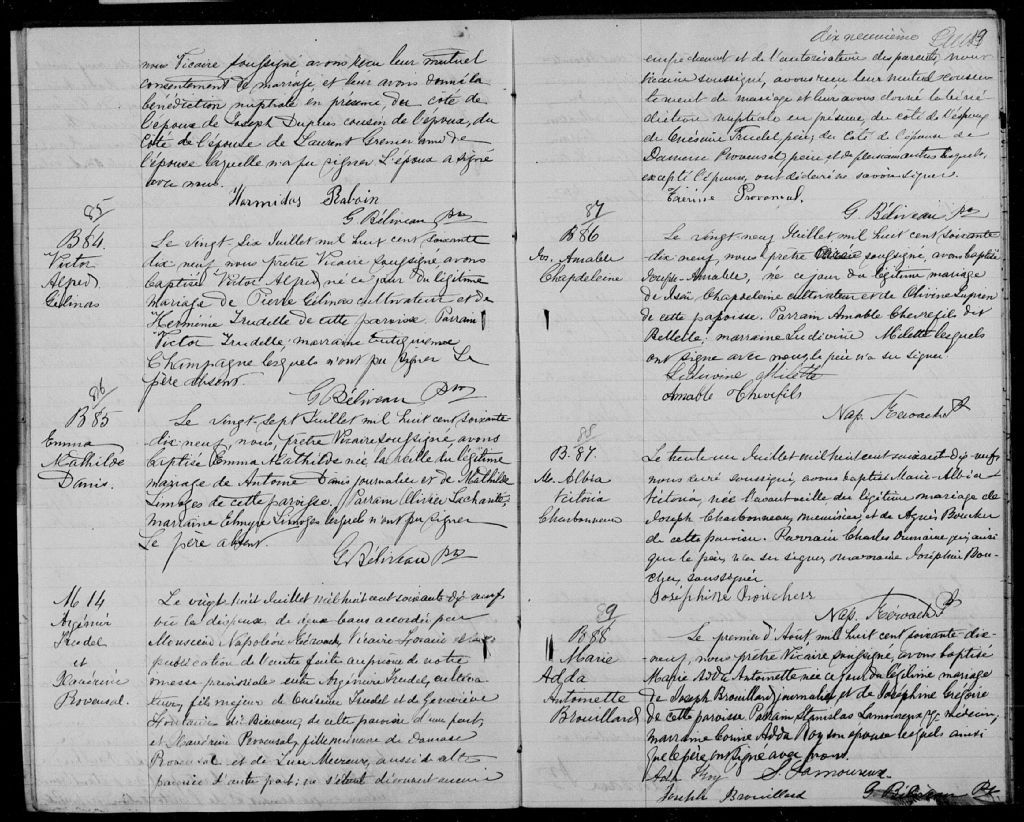 nous Vicaire soussigné avons reçu leur mutuel
consentement de mariage, et leur avons donné la
bénédiction nuptiale en présence, du côté de
l'époux de Joseph Duplus cousin de l'époux, du
côté de l'épouse de Laurent Grenier ami de
l'épouse laquelle n'a pu signer L'époux a signé
avec nous.
Hormidas Rabouin
G. Béliveau Ptre
85
B 84.
Victor
Alfred
Gélinas
Le vingt-six Juillet mil huit cent soixante
dix neuf nous prêtre Vicaire soussigné avons
baptisé Victor Alfred, né ce jour du légitime
mariage de Pierre Gélinas cultivateur et de
Herménie Trudelle de cette paroisse. Parrain
Victor Trudelle, marraine
Champagne lesquels n'ont pu signer Le
père absent
G Béliveau Ptre
86
B 85
Emma
Mathilde
Danis.
Le vingt-sept Juillet mil huit cent soixante
dix neuf, nous, prêtre Vicaire soussigné, avons
baptisé Emma Mathilde née la veille du légitime
mariage de Antoine Danis journalier et de Mathilde
Limoges de cette paroisse. Parrain Olivier Lachante,
marraine Elmyre Limoges lesquels n'ont pu signer
Le père absent
G. Béliveau Ptre
M 14
Trudel
et
Provensal.
Le vingt huit Juillet mil huit cent soixante dix neuf
vu la dispense de deux bans accordée par
Monsieur Napoléon Kéroack, Vicaire Forain et la
publication de l'autre faite au prône de notre
messe paroissiale entre Trudel, cultiva
teur, fils majeur de Onésime Trudel et de Geneviève
Fontaine dit Bienvenue, de cette paroisse d'une part;
et Provensal, fille mineure de Damase
Provensal et de Lucie Mercure, aussi de cette
paroisse d'autre part; ne s'étant découvert aucun
dix neuvième
19
empêchement et de l'autorisation des parents, nous
Vicaire soussigné, avons reçu leur mutuel consen
tement de mariage et leur avons donné la béné
diction nuptiale en présence, du côté de l'époux
de Onésime Trudel père, du côté de l'épouse de
Damase Provensal, père et de plusieurs autres lesquels,
excepté l'épouse, ont déclaré ne savoir signer.
Provensal.
G. Béliveau Ptre
87
B 86
Jos. Amable
Chapdeleine
Le vingt-neuf Juillet mil huit cent soixante
dix neuf, nous prêtre soussigné, avons baptisé
Joseph-Amable, né ce jour du légitime mariage
de Isaï Chapdeleine cultivateur et de Olivine Lupien
de cette paroisse. Parrain Amable Chevrefils dit
Bellisle; marraine Ludivine Milette lesquels
ont signé avec nous le père n'a su signer.
Ludivine Milette
Amable Chevrefils
Nap. Kéroack Pt
88
B. 87.
M. Albia
Victoria
Charbonneau
Le trente un Juillet mil huit cent soixante dix-neuf
nous curé soussigné, avons baptisé Marie-Albia-
Victoria, née l'avant-veille du légitime mariage de
Joseph Charbonneau, menuisier, et de Agnès Boucher
de cette paroisse. Parrain Charles Dumaine qui ainsi
que le père n'a su signer, marraine Josephine Bou-
cher, soussignée
Joséphine Bouchers
Nap. Kéroack Pt
89
B 88
Marie
Adda
Antoinette
Brouillard
Le premier d'Août mil huit cent soixante-dix-
neuf, nous prêtre Vicaire soussigné, avons baptisé
Marie Adda Antoinette née ce jour du légitime mariage
de Joseph Brouillard journalier et de Josephine Grégoire
de cette paroisse Parrain Stanislas Lamoureux médecin,
marraine Adda Roy son épouse lesquels ainsi
que le père, ont signé avec nous.
Ada Roy
S. Lamoureux
Joseph Brouillard
G Béliveau Pt.